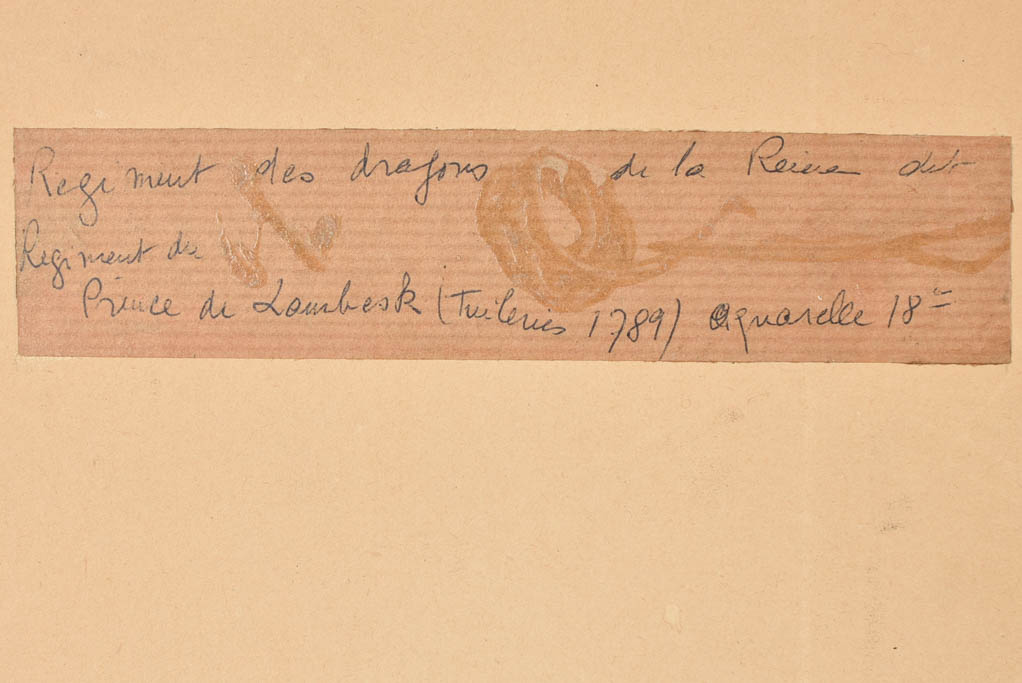 Regiment des dragons de la Reine dit
Regiment du
Prince de Lambesk (Tuileries 1789) aquarelle 18e